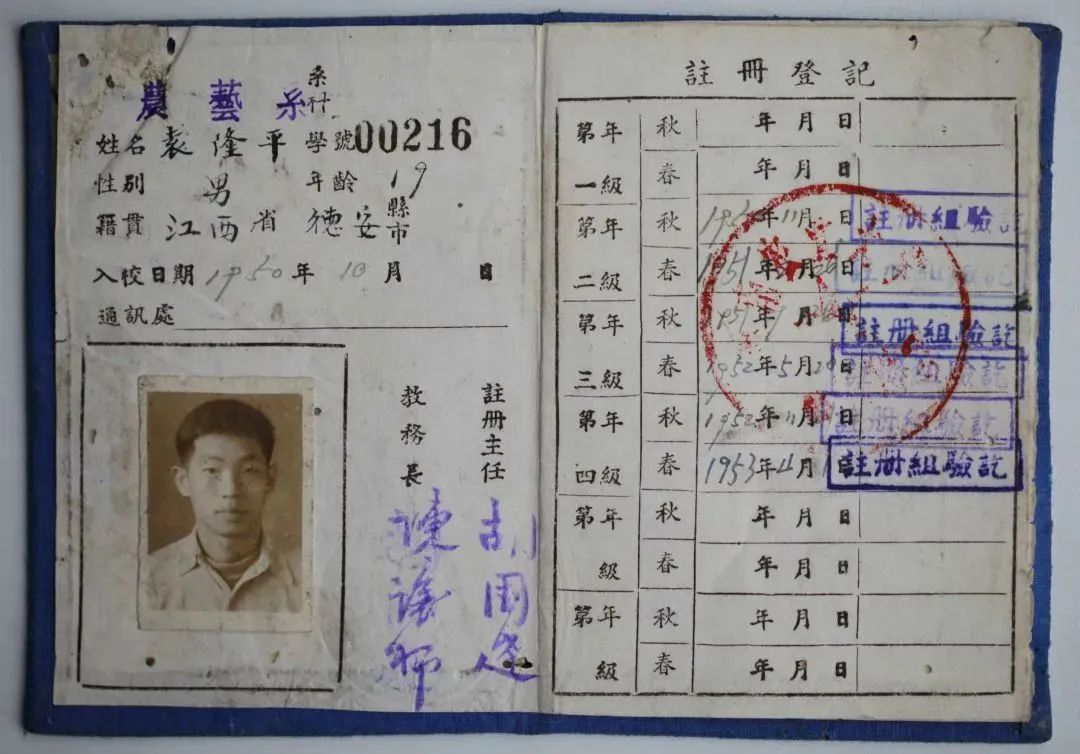 農藝系 系科
姓名 袁隆平 學號 00216
性別 男 年齡 19
籍貫 江西省 德安 縣市
入校日期 1950年10月 日
通訊處
註册主任
教務長
註冊登記
第一年級 秋 年月日
春 年月日
第二年級 秋 年11月 日 註册組驗訖
春 1951年 月 日 註册組驗訖
第三年級 秋 1951年 月 日 註册組驗訖
春 1952年5月2 日 註册組驗訖
第四年級 秋 1952年11月 日 註册組驗訖
春 1953年4月 註册組驗訖
第年級 秋 年月日
春 年月日
第年級 秋 年月日
春 年月日